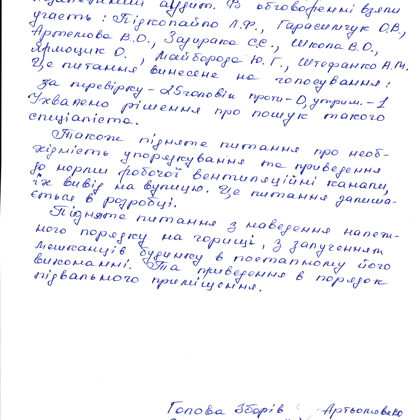 аудит. В обговоренні взяли
участь: Підкопайло Л.Ф., Гарасимчук О.В.,
Артьомова В.О., Задирака С.Є., Школа В.О.,
Ярмоцик О., Майборода Ю.Г., Штефанко А.М.
Це питання винесене на голосування:
за перевірку – 25 чоловік проти – 0, утрим. – 1
Ухвалено рішення про пошук такого
спиціаліста.
Також підняте питання про необ-
хідність упорядкування та приведення
до норми робочої вентиляційні канали,
їх вивід на вулицю. Це питання залиша-
ється в розробці.
Підняте питання з наведення належ-
ного порядку на горищі, з залученням
мешканців будинку в поетапному його
виконанні. Та приведення в порядок
підвального приміщення.
Голова Зборів: